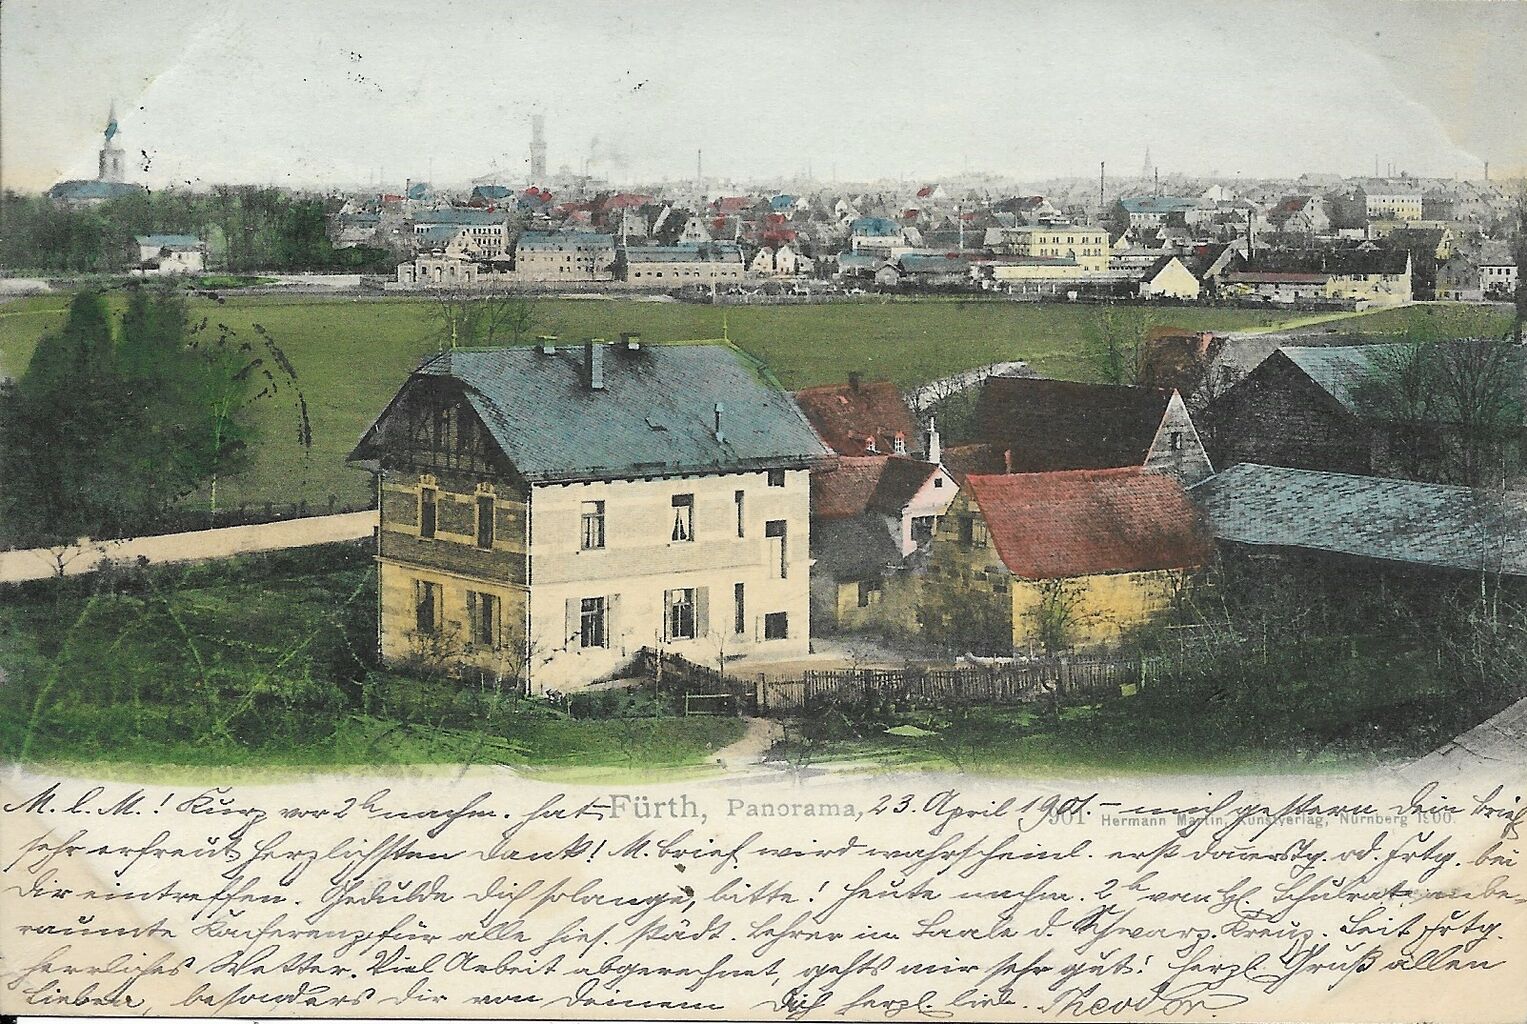 M. l. M.! Kurz vor 2 h nachm. hat Fürth, Panorama, 23. April 1901. – mich gestern Dein Brief
901 Hermann Martin, Kunstverlag, Nürnberg 1900.
sehr erfreut herzlichsten Dank! M. Brief wird wahrscheinl. erst Donerstg. od. Frtg. bei
Dir eintreffen. Gedulde Dich solange, bitte! Heute nachm. 2 h vom H. Schulrat anbe-
raumte Konferenz für alle hies. städt. Lehrer im Saale d. Schwarz. Kreuz. Seit Frtg.
herrliches Wetter. Viel Arbeit abgerechnet, gehts mir sehr gut! Herzl. Gruß allen
Lieben, besonders Dir von Deinem Dich herzl. lieb. Theodor.